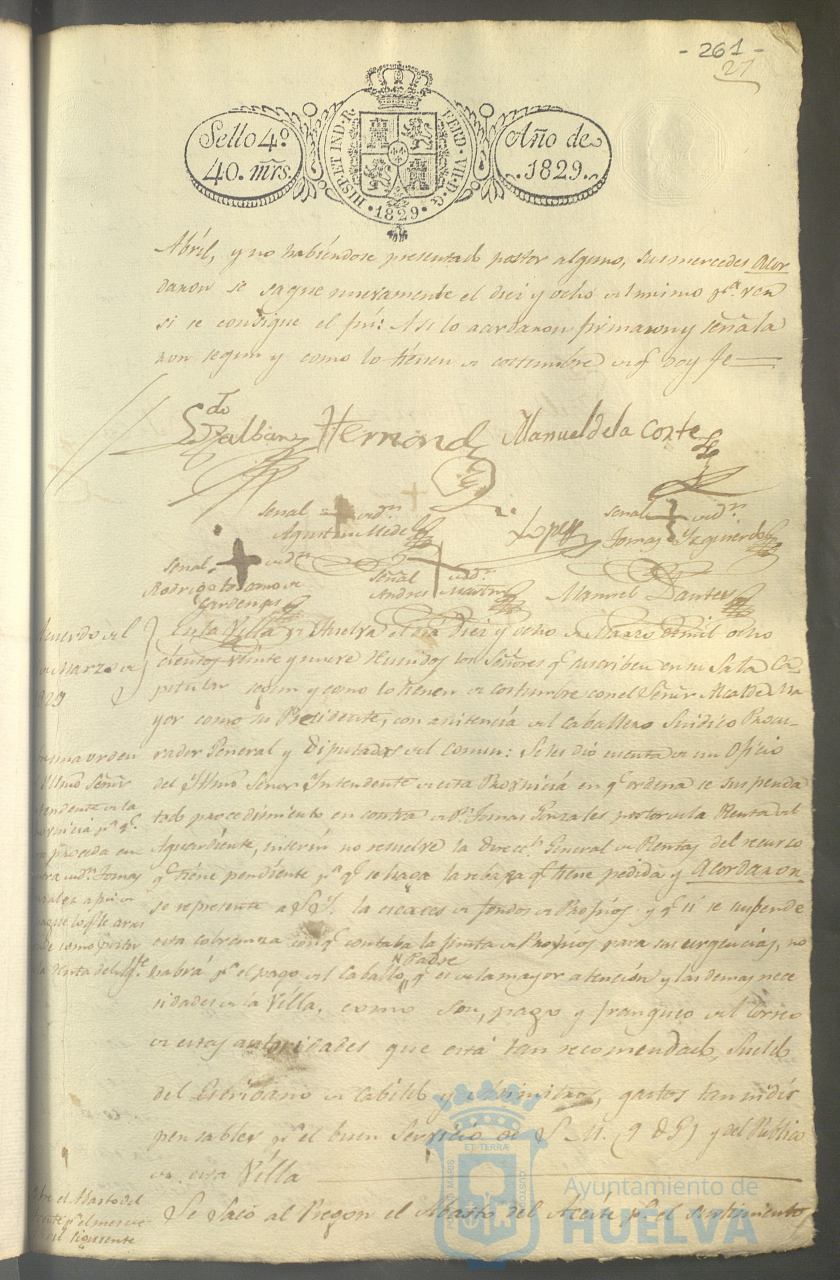 - 261 -
27
Sello 4º
40. mrs.
HISP. ET IND. R. FERD. VII. D. G.
· 1829 ·
Año de
1829.
Abril, y no habiéndose presentado postor alguno, sus mercedes Acor
daron se saque nuevamente el diez y ocho del mismo pª. ver
si se consigue el fin: Asi lo acordaron firmaron y señala
ron segun y como lo tienen de costumbre de q doy fe
Hernand Manuel de la Corte
señal de dn
Agustin
Lopez
señal de dn
Tomas Yzquierdo
señal de dn
Rodrigo
Cardenas
Señal de dn
Andres Martin
Manuel
Acuerdo del
de Marzo de
1829
En la Villa de Huelva el dia diez y ocho de Marzo de mil ocho
cientos veinte y nueve Reunidos los Señores q suscriben en su Sala Ca-
pitular segun y como lo tienen de costumbre con el Señor Alcalde Ma
yor como su Presidente, con asistencia del Caballero Sindico Procu-
rador General y Diputados del comun: Se les dió cuenta de un Oficio
del Yltmo Señor Yntendente de esta Provincia en q ordena se suspenda
todo procedimiento en contra de Dn Tomas Gonzales postor de la Renta del
Aguardiente, interin no resuelve la Direccn General de Rentas del recurso
q tiene pendiente pª q se haga la rebaja q tiene pedida y Acordaron
se represente a S. Y. la escases de fondos de Propios y q si se suspende
esta cobranza con q contaba la Junta de Propios para sus urgencias, no
habrá pª el pago del Caballo Padre q es de la mayor atención y las demas nece
sidades de la Villa, como son, pago y franqueo del Correo
de estas autoridades que está tan recomendado, sueldo
del Escribano de Cabildo y, gastos tan indis
pensables pª el buen Servicio de S. M. (q D G) y del Publico
de esta Villa
orden
Yltmo Señor
Yntendente de la
Provincia pª q
no proceda en
contra de dn Tomas
Gonzales
como postor
la Renta del
Sobre el Abasto del
Aceite pª el mes de
Abril siguiente
Se Sacó al Pregon el Abasto del Aceite pª el surtimiento
Ayuntamiento de
HUELVA